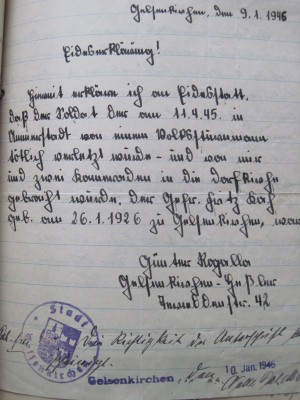 Gelsenkirchen, den 9.1.1946
Eideserklärung!
Hiermit erkläre ich an Eidesstatt,
daß der Soldat der am 11.4.45. in
von einem Volkssturmmann
tötlich verletzt wurde - und von mir
und zwei Kameraden in die Dorfkirche
gebracht wurde, der Gefr. Fritz
geb. am 26.1.1926 zu Gelsenkirchen, war
Günter Rogalla
Gelsenkirchen-Heßler
str. 42
Stadt
Die Richtigkeit der Unterschrift
Gelsenkirchen, den 10. Jan. 1946